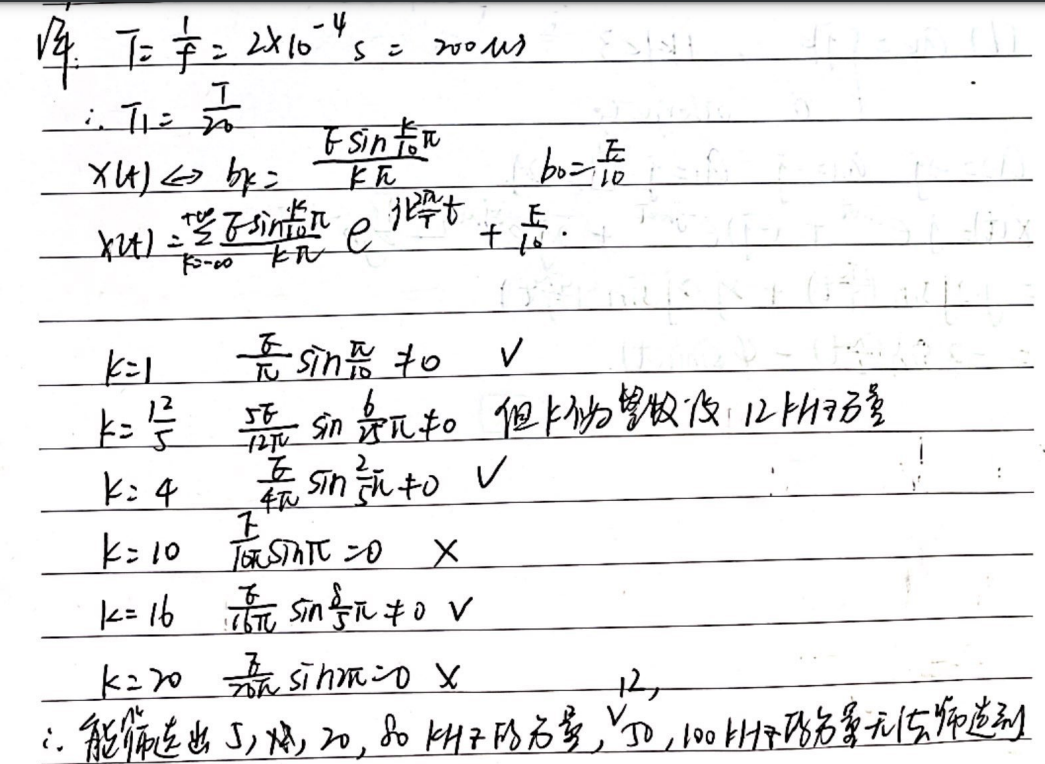 解. T = 1/f = 2×10⁻⁴ s = 200 us
∴ T₁ = T/20
x(t) ↔ bₖ = E sin(k/10)π / kπ    b₀ = E/10
x(t) = Σ_{k=-∞}^{+∞} E sin(k/10)π / kπ e^{jk(2π/T)t} + E/10.
k=1    E/π sin π/10 ≠0    √
k= 12/5    5E/12π sin 6/25 π ≠0    但k仍为整数 没 12kHz分量
k= 4    E/4π sin 2/5 π ≠0    √
k= 10    E/10π sin π =0    ×
k= 16    E/16π sin 8/5 π ≠0    √
k= 20    E/20π sin 2π =0    ×
∴ 能筛选出 5, 20, 80 kHz的分量, 12, 50, 100 kHz的分量无法筛选到